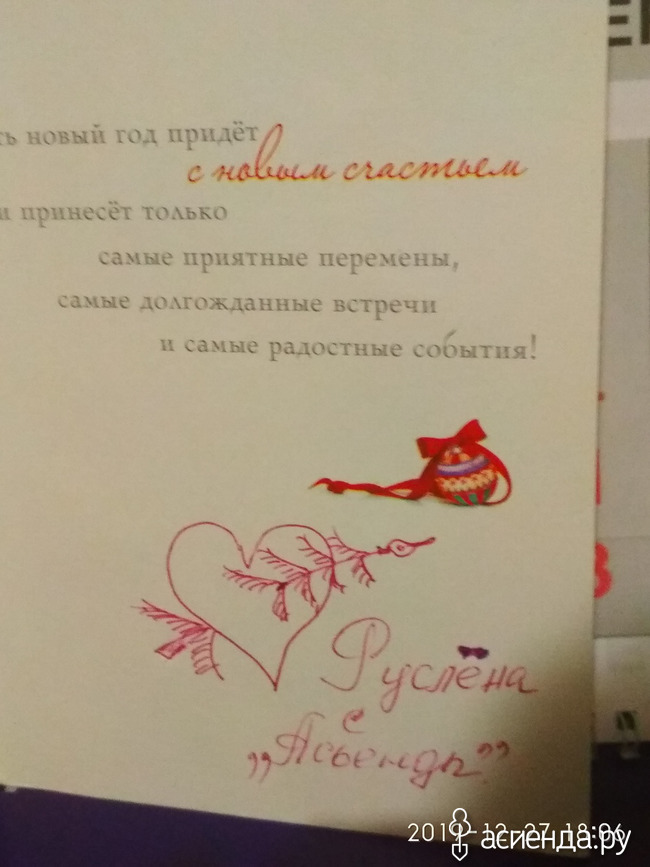 ть новый год придёт
с новым счастьем
и принесёт только
самые приятные перемены,
самые долгожданные встречи
и самые радостные события!
Руслёна
с
„Асьенды”
2019-12-27 18:06
асиенда.ру